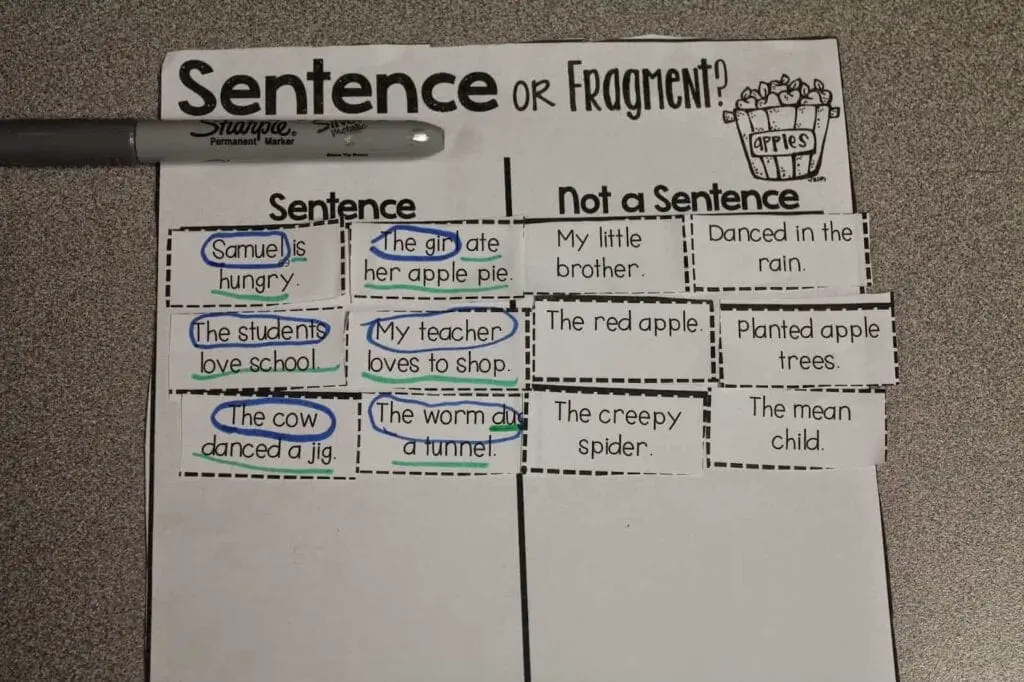 Sentence OR FRAGMENT?
apples
Sharpie
Permanent Marker
Sentence
Not a Sentence
Samuel is
hungry.
The girl ate
her apple pie.
My little
brother.
Danced in the
rain.
The students
love school.
My teacher
loves to shop.
The red apple.
Planted apple
trees.
The cow
danced a jig.
The worm dug
a tunnel.
The creepy
spider.
The mean
child.